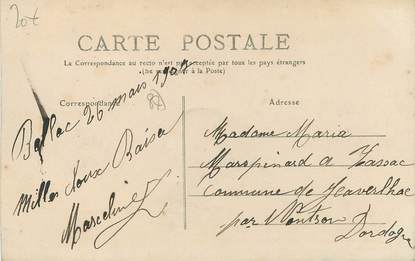 20€
CARTE POSTALE
La Correspondance au recto n'est pas acceptée par tous les pays étrangers
(Se renseigner à la Poste)
Correspondance
Bellac 26 mars 1908
Milles doux Baiser
Marceline
Adresse
Madame Maria
Marspinard a Tassac
Commune de Javerlhac
par Nontron
Dordogne